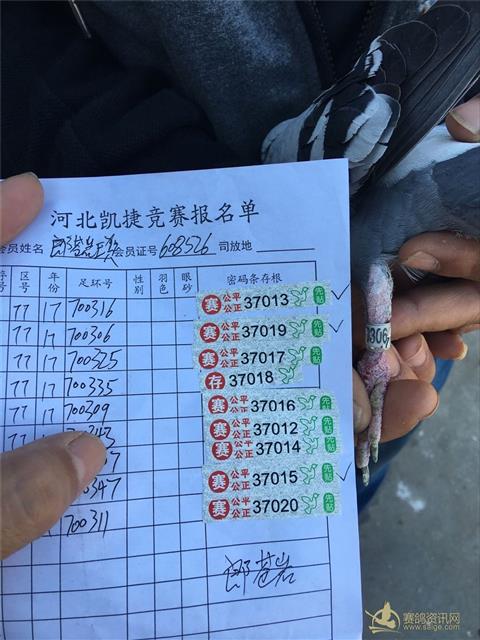 河北凯捷竞赛报名单
会员姓名 会员证号 608526 司放地
序号 区号 年份 足环号 性别 羽色 眼砂 密码条存根
77 17 700316 赛 公平公正 37013 先贴
77 17 700306 赛 公平公正 37019 先贴
77 17 700325 赛 公平公正 37017 先贴
77 17 700335 存 37018
77 17 700309 赛 公平公正 37016 先贴
赛 公平公正 37012 先贴
赛 公平公正 37014 先贴
347 赛 公平公正 37015 先贴
700311 赛 公平公正 37020 先贴
0306
赛鸽资讯网
www.saige.com